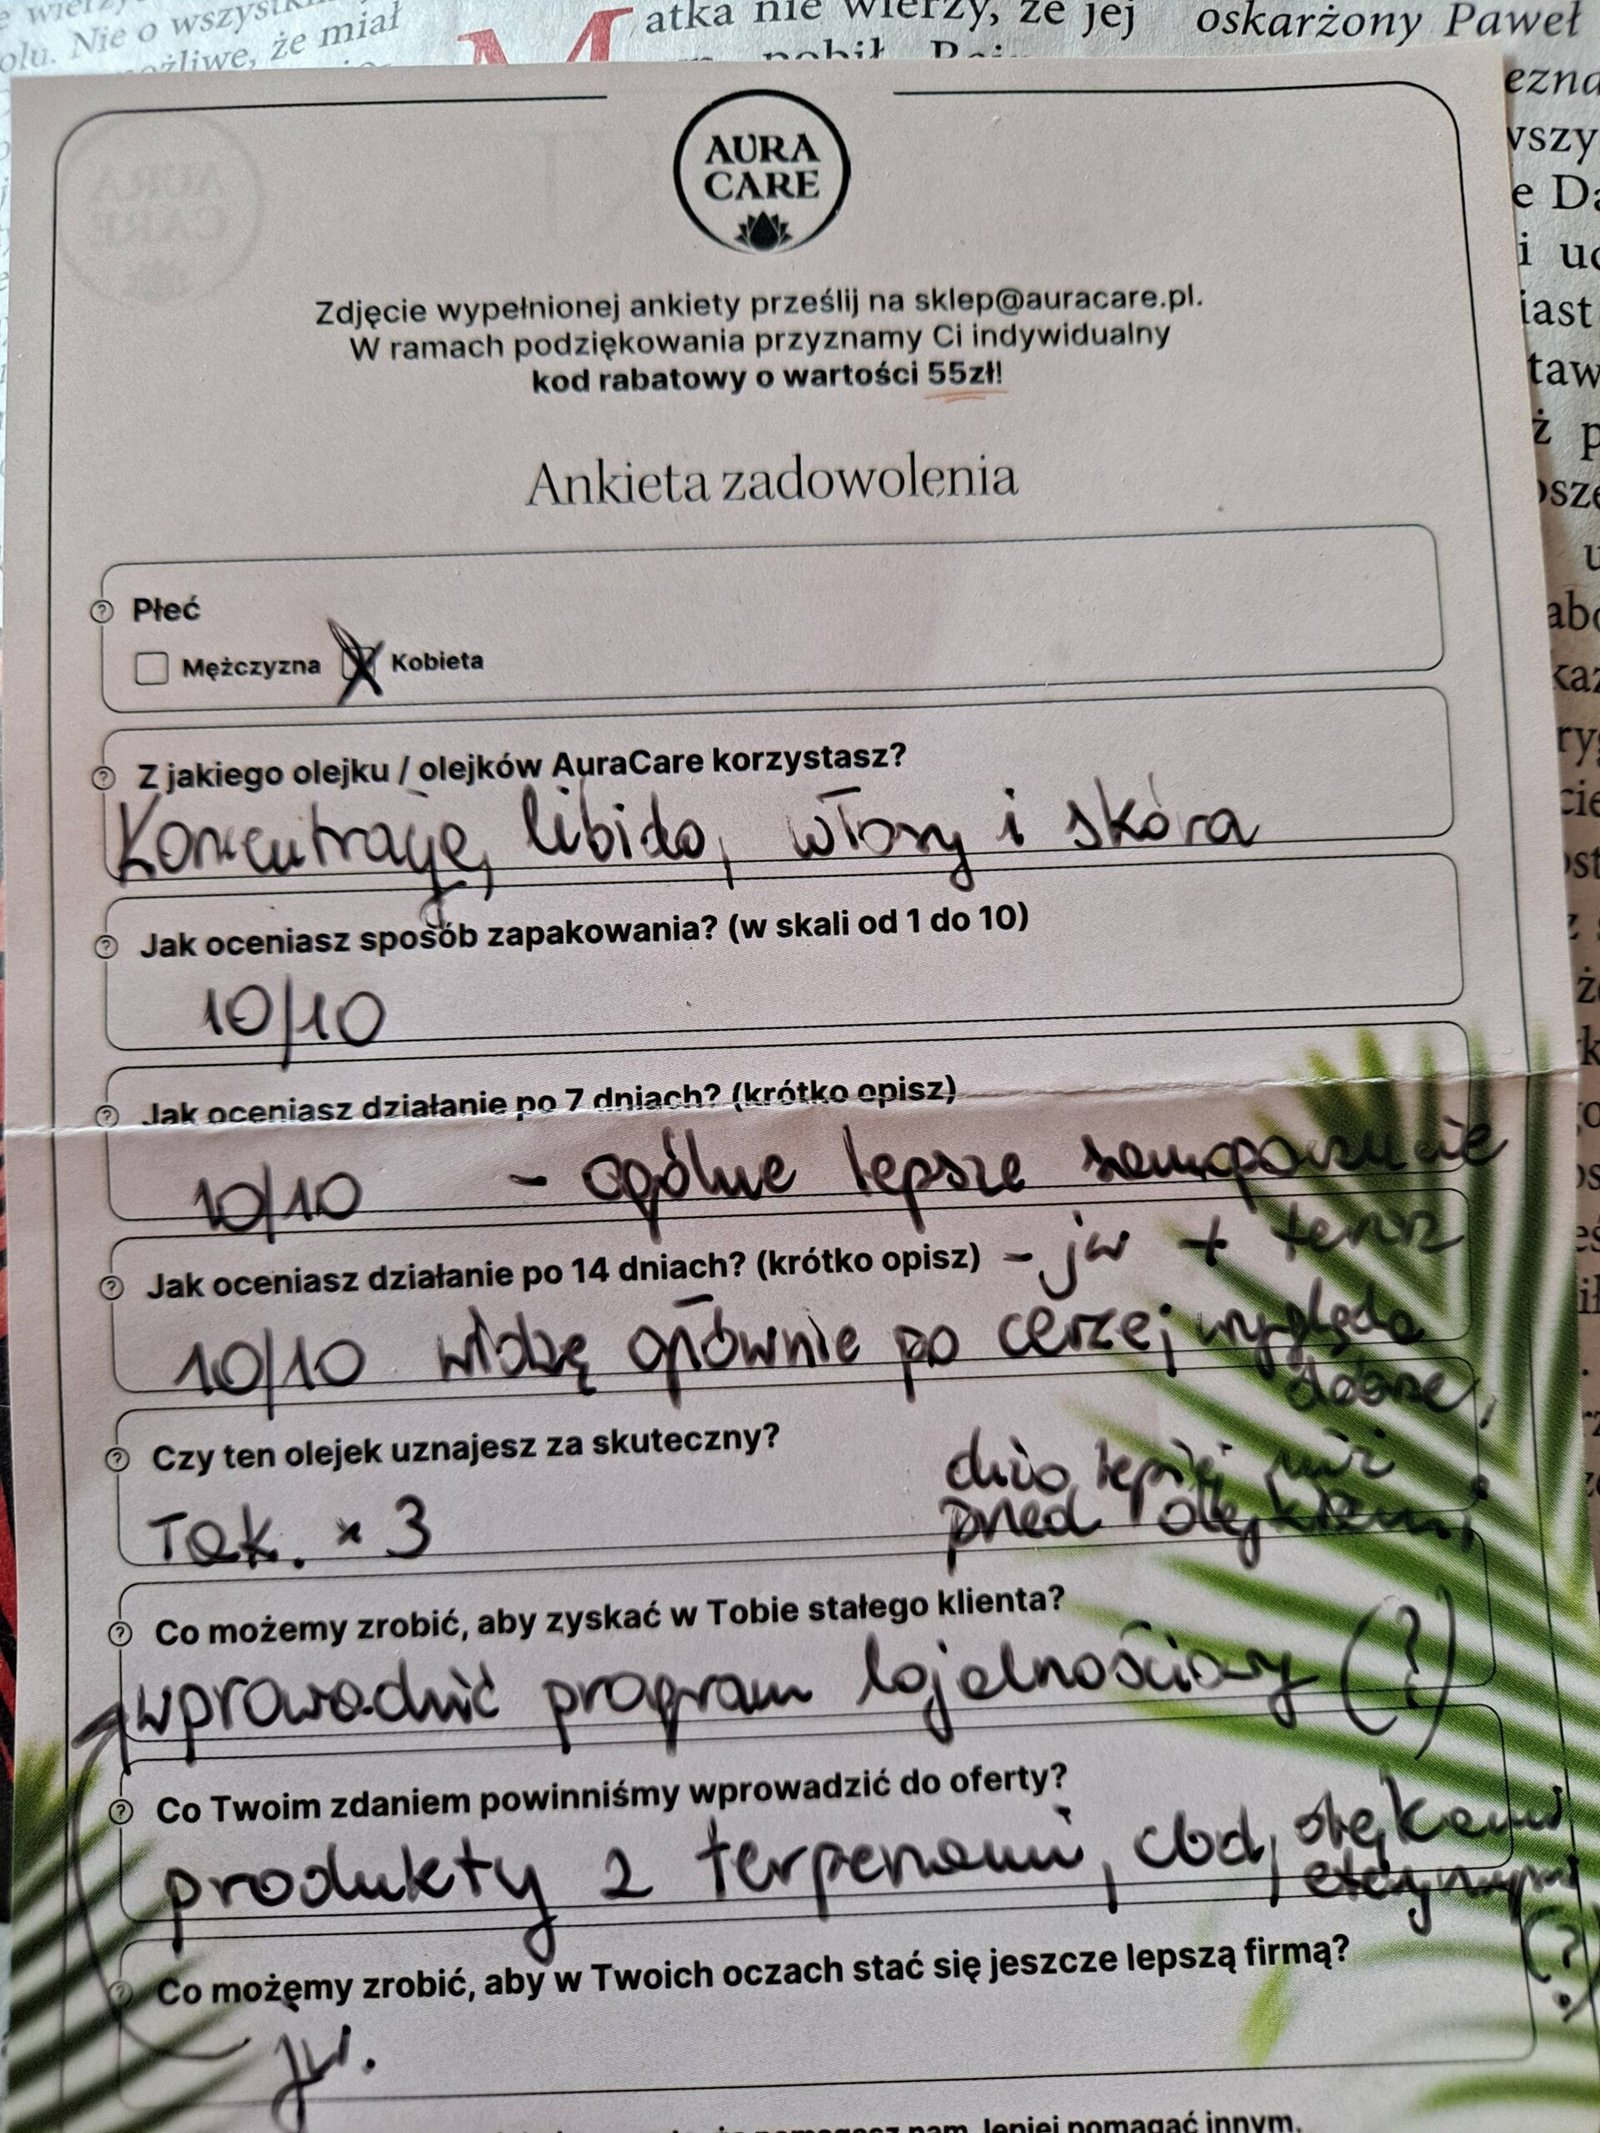 atka nie wierzy, że jej
oskarżony Paweł
olu. Nie o
że miał
AURA
CARE
Zdjęcie wypełnionej ankiety prześlij na sklep@auracare.pl.
W ramach podziękowania przyznamy Ci indywidualny
kod rabatowy o wartości 55zł!
Ankieta zadowolenia
Płeć
Mężczyzna X Kobieta
Z jakiego olejku / olejków AuraCare korzystasz?
Koncentrację, libido, włosy i skóra
Jak oceniasz sposób zapakowania? (w skali od 1 do 10)
10/10
Jak oceniasz działanie po 7 dniach? (krótko opisz)
10/10 - ogólne lepsze samopoczucie
Jak oceniasz działanie po 14 dniach? (krótko opisz) - jw + teraz
10/10 widzę głównie po cerze; wygląda
dobrze,
Czy ten olejek uznajesz za skuteczny?
dużo lepiej niż
przed olejkiem!
Tak. x 3
Co możemy zrobić, aby zyskać w Tobie stałego klienta?
wprowadzić program lojalnościowy (?)
Co Twoim zdaniem powinniśmy wprowadzić do oferty?
produkty z terpenami, cbd, olejkami
eterycznymi
(?)
Co możemy zrobić, aby w Twoich oczach stać się jeszcze lepszą firmą?
jw.
nam, lepiej pomagać innym.